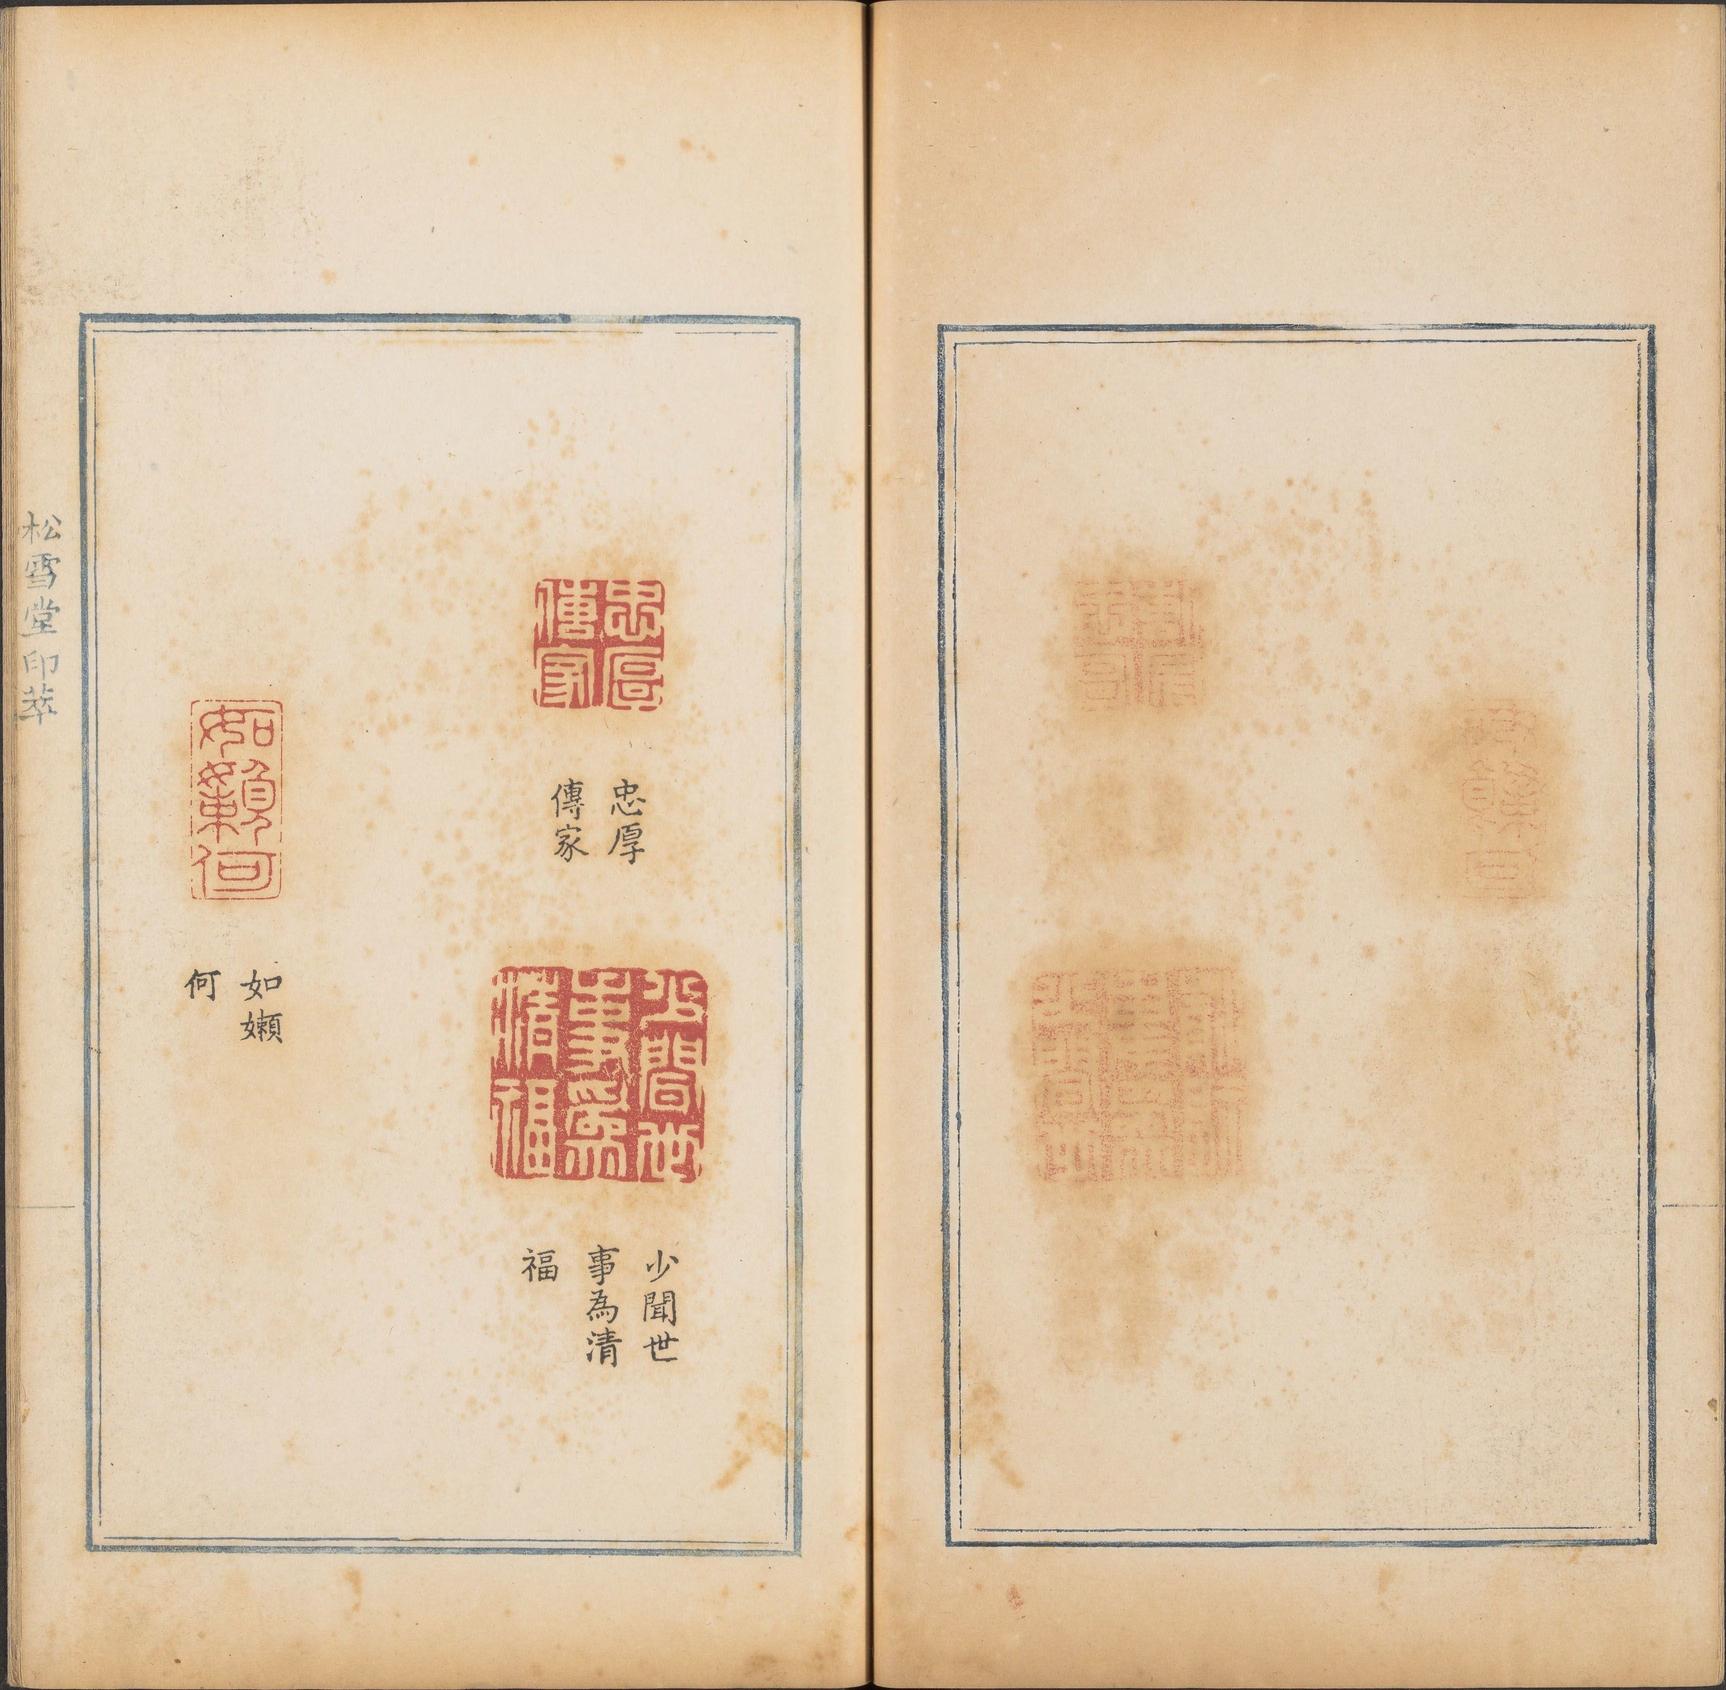 忠厚
傳家
忠厚
傳家
少聞世
事為清
福
少聞世
事為清
福
如嬾何
如嬾
何
松雪堂印萃